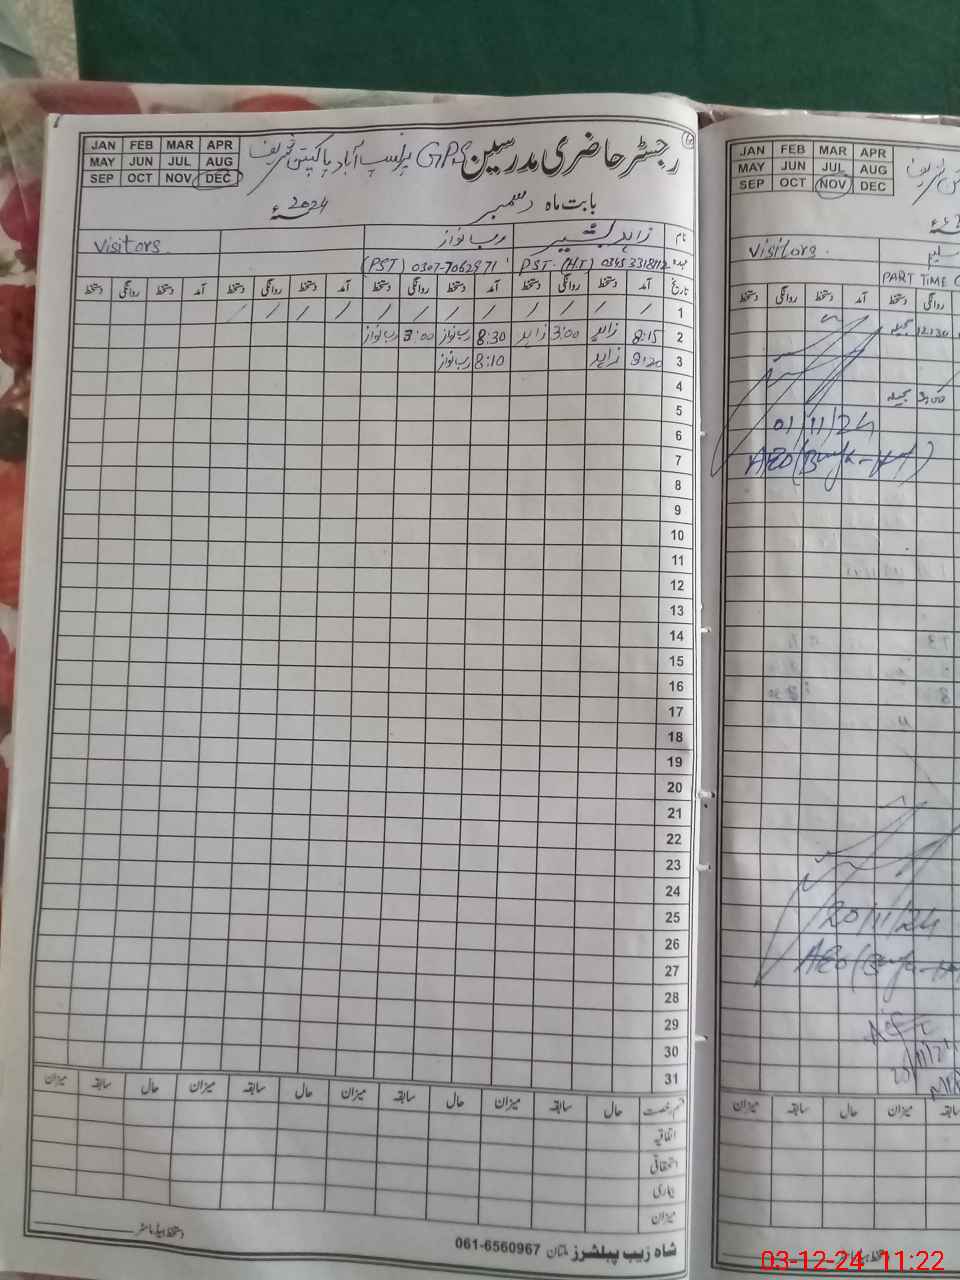 رجسٹر حاضری مدرسین GPS
JAN FEB MAR APR
MAY JUN JUL AUG
SEP OCT NOV DEC
بابت ماہ دسمبر 2024ء
نام زاہد بشیر رب نواز Visitors
عہدہ PST. (HT) 03453318112 (PST) 0307-7062971
تاریخ آمد دستخط روانگی دستخط آمد دستخط روانگی دستخط آمد روانگی دستخط آمد دستخط روانگی دستخط
1 / / / / / / / / / / / /
2 8:15 زاہد 3:00 زاہد 8:30 رب نواز 3:00 رب نواز
3 8:20 زاہد 8:10 رب نواز
4
5
6
7
8
9
10
11
12
13
14
15
16
17
18
19
20
21
22
23
24
25
26
27
28
29
30
31
قسم رخصت حال سابقہ میزان حال سابقہ میزان حال سابقہ میزان حال سابقہ میزان
اتفاقیہ
استحقاقی
بیماری
میزان
دستخط ہیڈ ماسٹر
شاہ زیب پبلشرز ملتان 061-6560967
JAN FEB MAR APR
MAY JUN JUL AUG
SEP OCT NOV DEC
Visitors.
PART TIME
دستخط روانگی دستخط آمد دستخط روانگی
12:30
3:00
01/11/24
AEO
20/11/24
AEO
میزان سابقہ حال میزان سابقہ
03-12-24 11:22